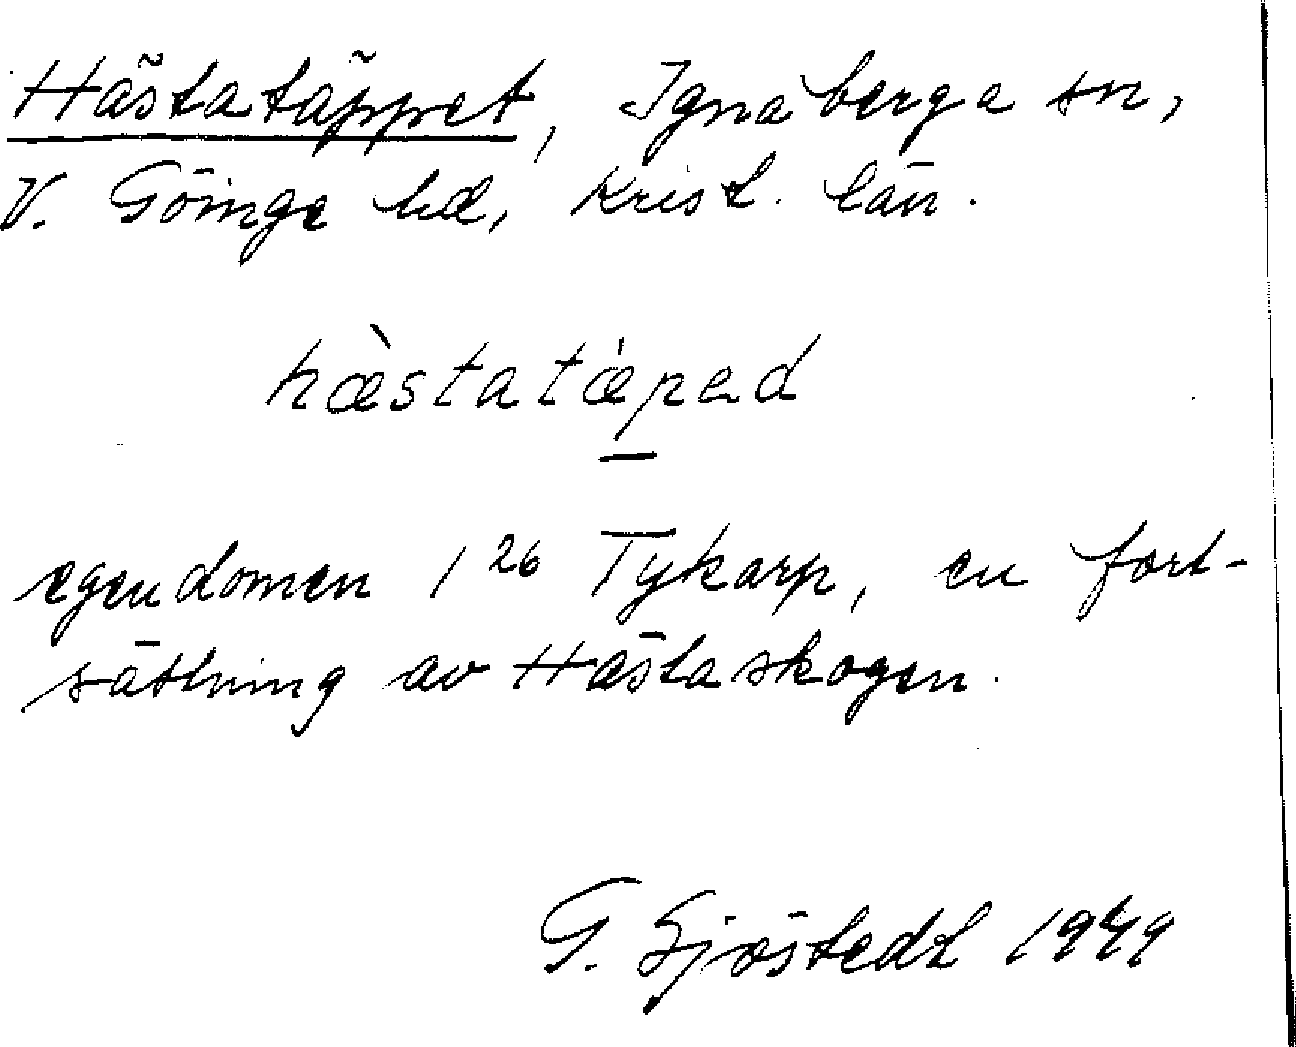 Hästatäppet, Ignaberga sn,
V. Göinge hd, Krist. län.
hæ̀statæ̍pəd
egendomen 1²⁶ Tykarp, en fort-
sättning av Hästaskogen.
G. Sjöstedt 1949